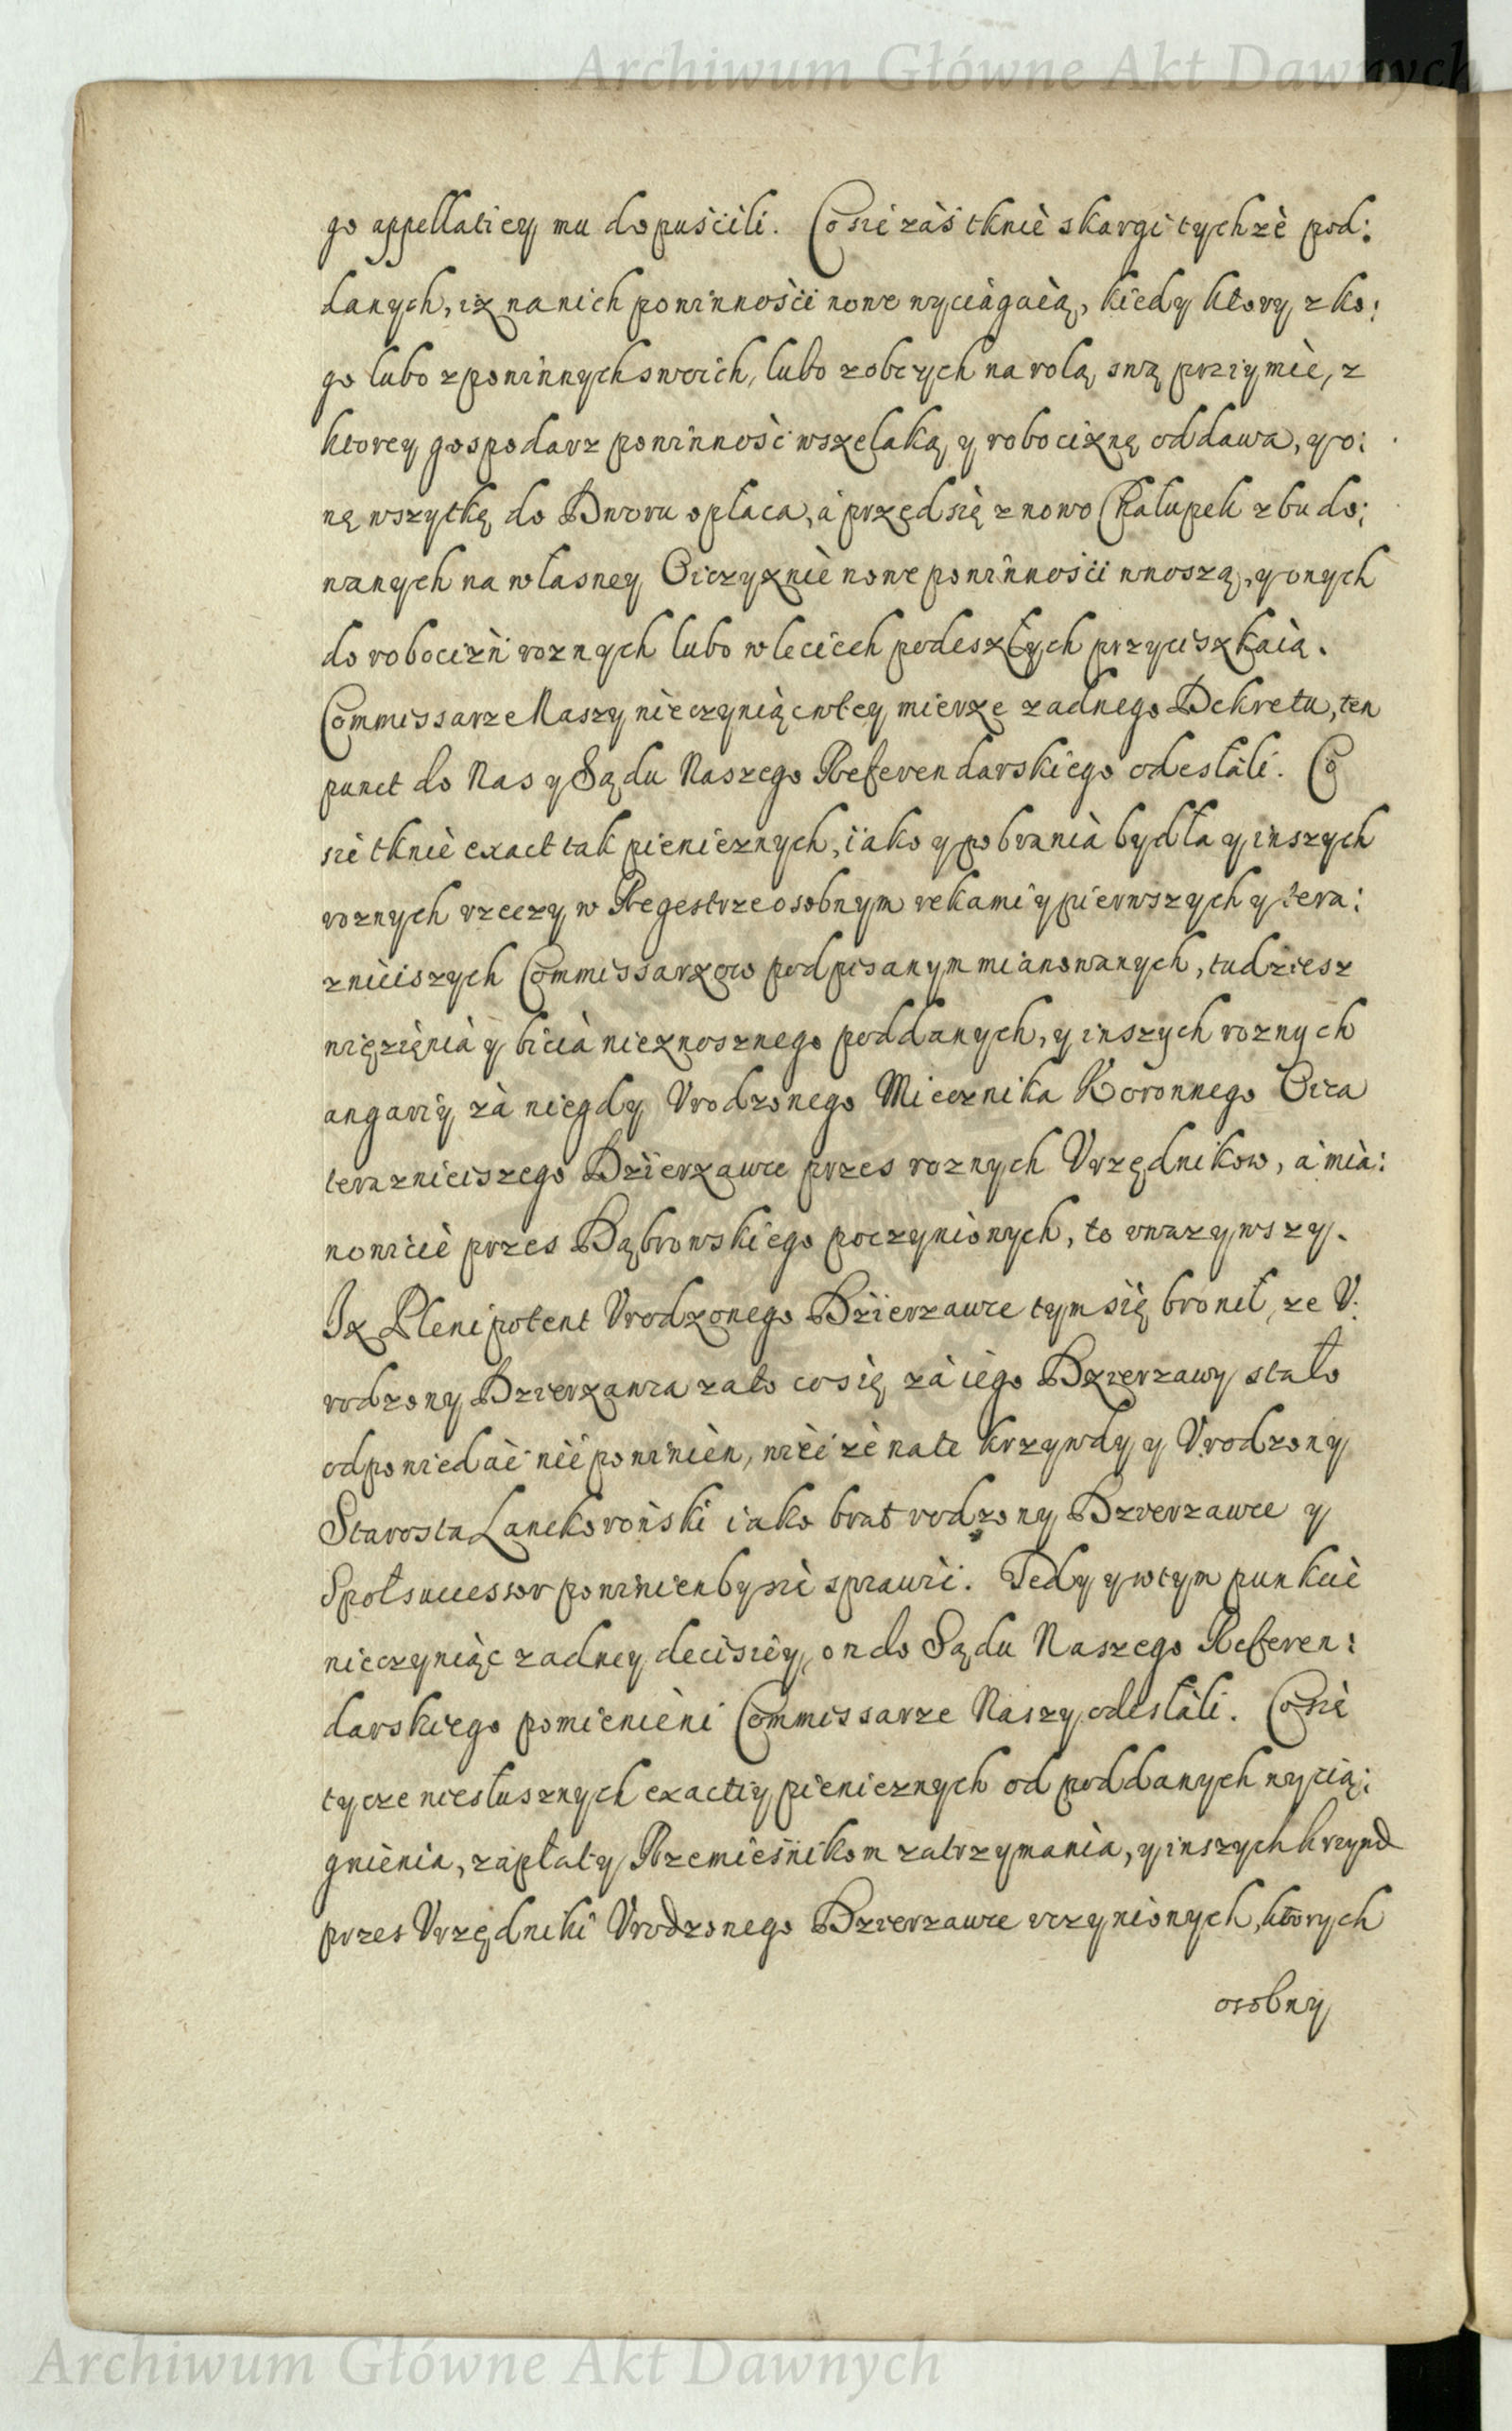 Archiwum Główne Akt Dawnych
go appellatiey mu dopuśćili. Co sie zaś tknie skargi tychże pod:
danych, iż na nich powinnośći nowe wyciągaią, kiedy ktory z ko:
go lubo z powinnych swoich, lubo z obcych na rolą swą przyimie, z
ktorey gospodarz powinność wszelaką y robociznę oddawa, y o:
nę wszytkę do Dworu opłaca, a przędsię z nowo Chałupek zbudo:
wanych na własney Oiczyznie nowe powinnośći wnoszą, y onych
do robocizń rożnych lubo w leciech podeszłych przyciszkaią.
Commissarze Naszy nieczyniąc w tey mierze żadnego Dekretu, ten
punct do Nas y Sądu Naszego Referendarskiego odesłali. Co
sie tknie exact tak pienieznych, iako y pobrania bydła y inszych
roznych rzeczy w Regestrze osobnym rekami y pierwszych y tera:
znieiszych Commissarzow podpisanym mianowanych, tudziesz
więzienia y bicia nieznosznego poddanych, y inszych roznych
angariy za niegdy Vrodzonego Miecznika Koronnego Oica
teraznieiszego Dzierzawce przes roznych Vrzędnikow, a mia:
nowicie przes Dąbrowskiego poczynionych, to vwazywszy.
Iz Plenipotent Vrodzonego Dzierzawce tym się bronił, ze V:
rodzony Dzierzawca za to co się za iego Dzierzawy stało
odpowiedać nie powinien, niżeże na te krzywdy y Vrodzony
Starosta Lanckoroński iako brat rodzony Dzierzawce y
Społsuccessor powinien by sie sprawić. Tedy y w tym punkcie
nieczyniąc zadney decisiey, on do Sądu Naszego Referen:
darskiego pomienieni Commissarze Naszy odesłali. Co sie
tycze niesłusznych exactiy pienieznych od poddanych wycią:
gnienia, zapłaty Rzemieśnikom zatrzymania, y inszych krzywd
przes Vrzędniki Vrodzonego Dzierzawce vczynionych, ktorych
osobny
Archiwum Główne Akt Dawnych